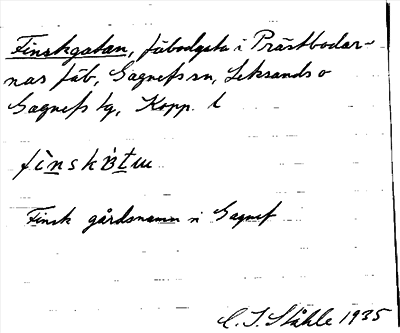 Finskgatan, fäbodgata i Prästbodar-
nas fäb, Gagnefs sn, Leksands o
Gagnefs tg, Kopp. l
Finsk gårdsnamn i Gagnef
C. I. Ståhle 1935